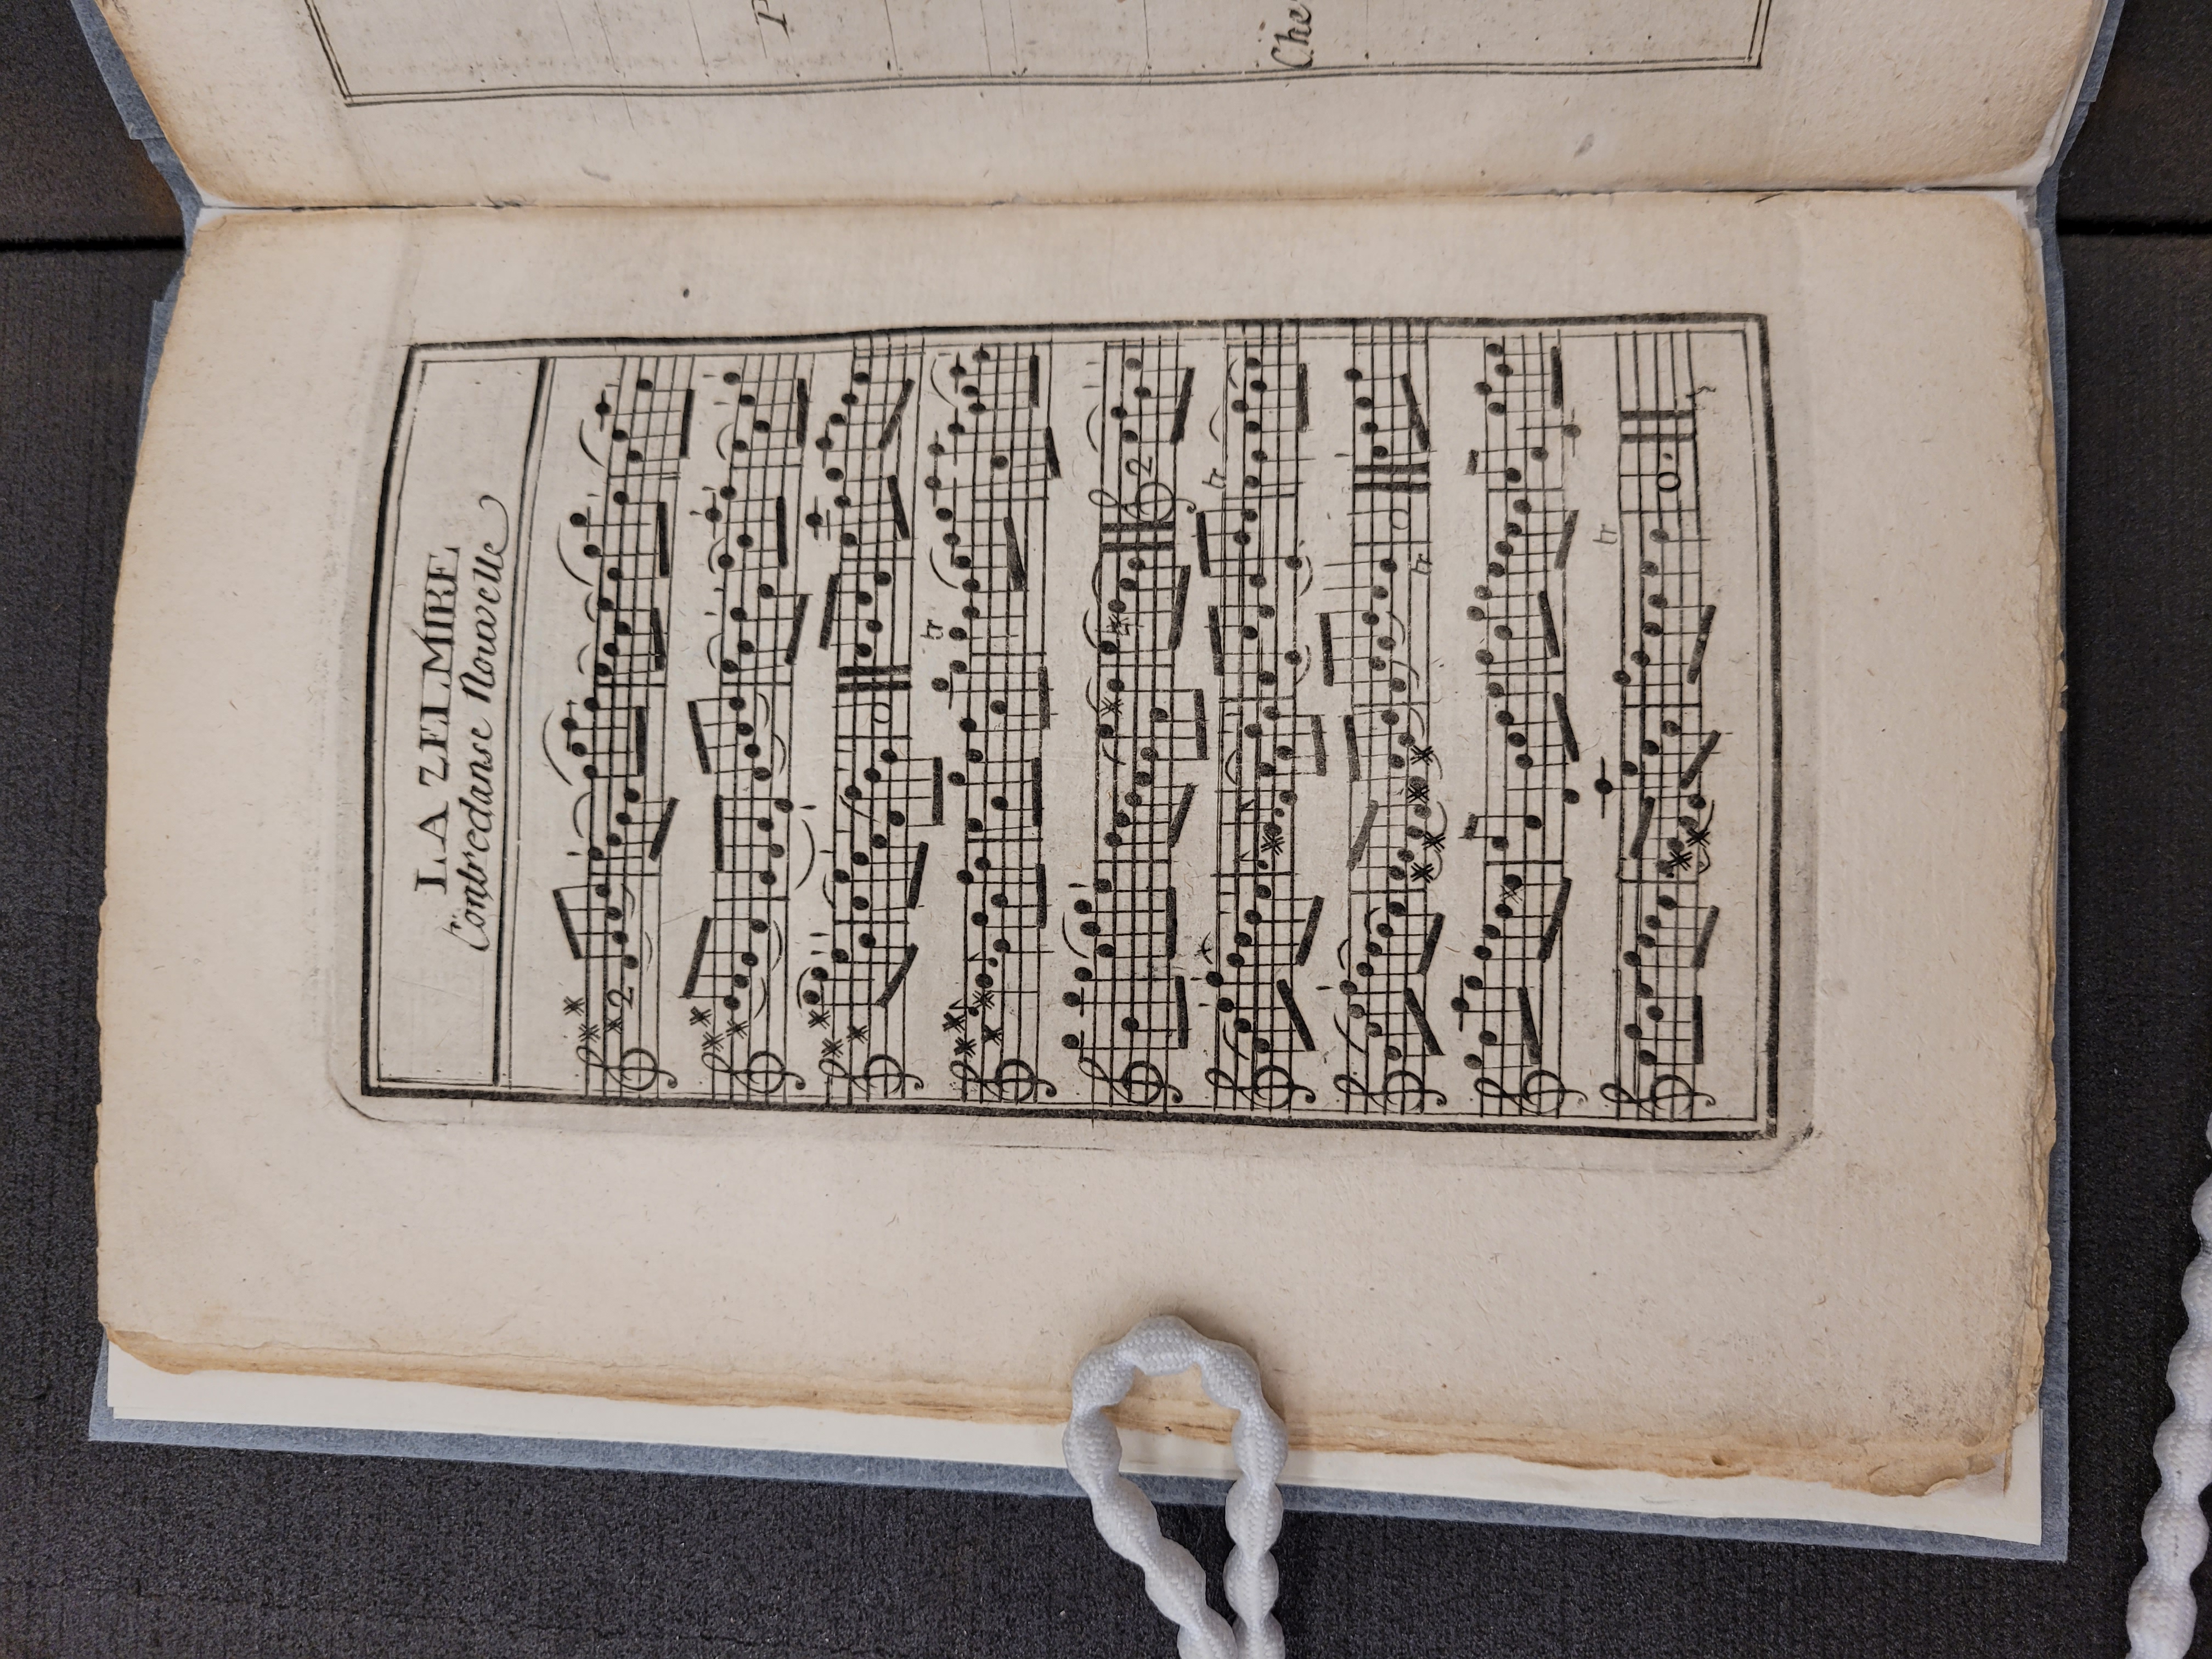 LA ZELMIRE
Contredanse Nouvelle
2
tr
2
tr
tr
tr
Che
P